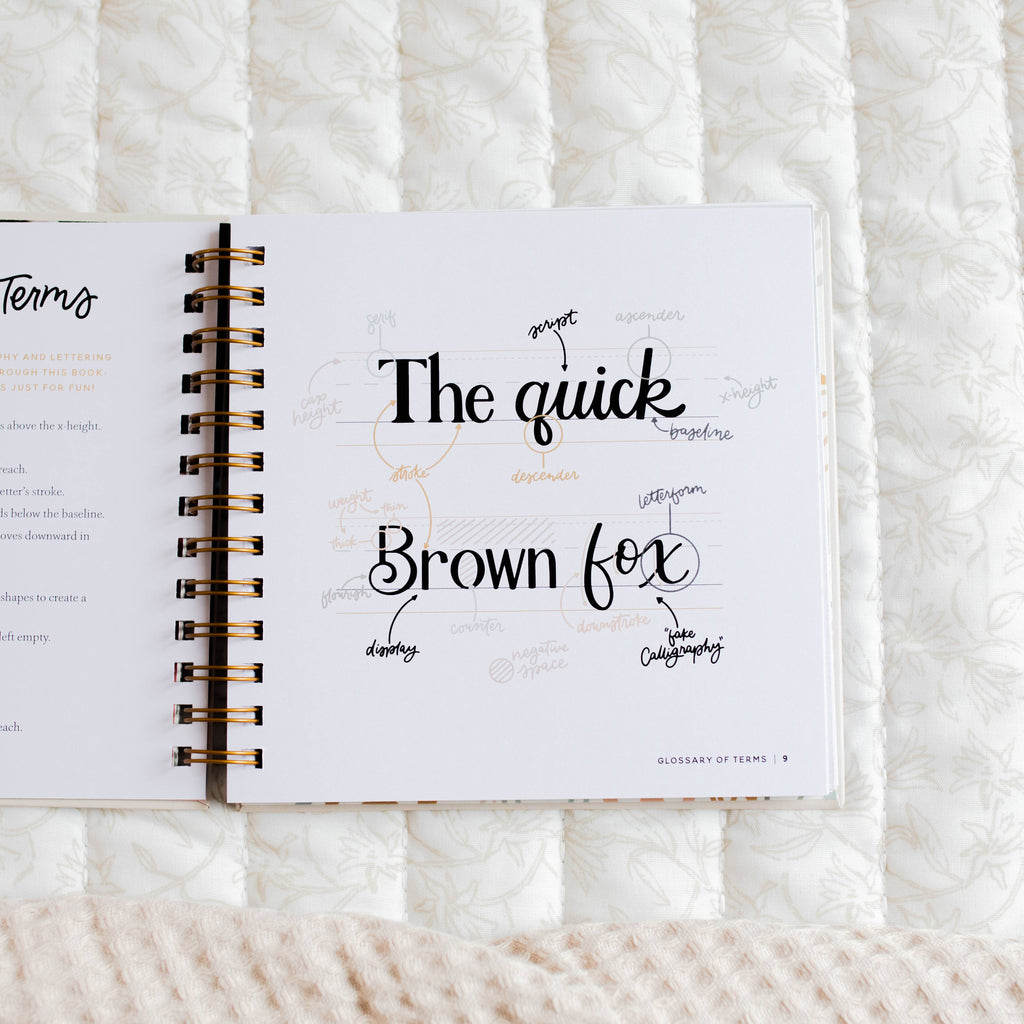 Terms
PHY AND LETTERING
THROUGH THIS BOOK:
S JUST FOR FUN!
s above the x-height.
reach.
etter's stroke.
ds below the baseline.
oves downward in
shapes to create a
left empty.
each.
serif
script
ascender
The quick
cap
height
x-height
baseline
stroke
descender
weight
thin
thick
letterform
Brown fox
flourish
display
counter
downstroke
"fake
Calligraphy"
negative
space
GLOSSARY OF TERMS | 9